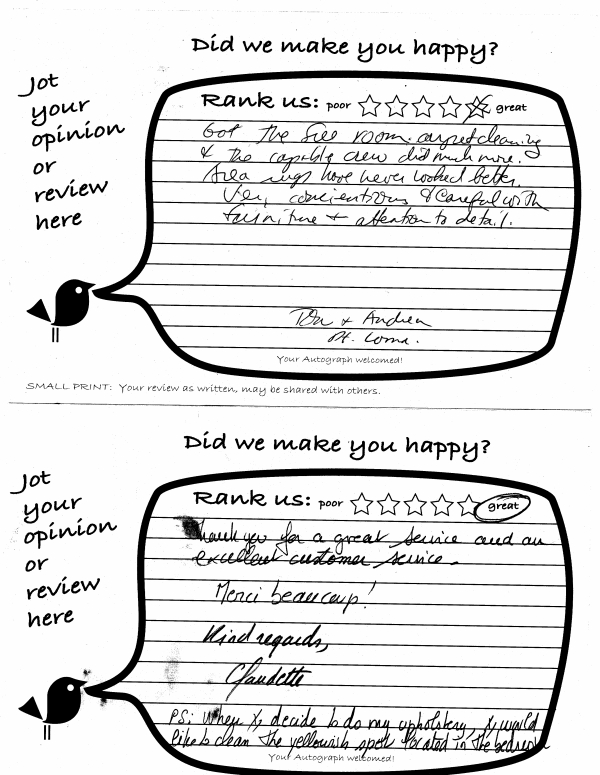 Did we make you happy?
Jot
your
opinion
or
review
here
Rank us: poor great
Got the five room carpet cleaning
& the capable crew did much more.
Area rugs have never looked better.
Very concientious & careful with
furniture + attention to detail.
& Andrea
Pt. Loma.
Your Autograph welcomed!
SMALL PRINT: Your review as written, may be shared with others.
Did we make you happy?
Jot
your
opinion
or
review
here
Rank us: poor great
Thank you for a great service and an
excellent customer service.
Merci beaucoup!
Kind regards,
Claudette
PS: When I decide to do my upholstery, I would
like to clean the yellowish spot located in the bedroom
Your Autograph welcomed!